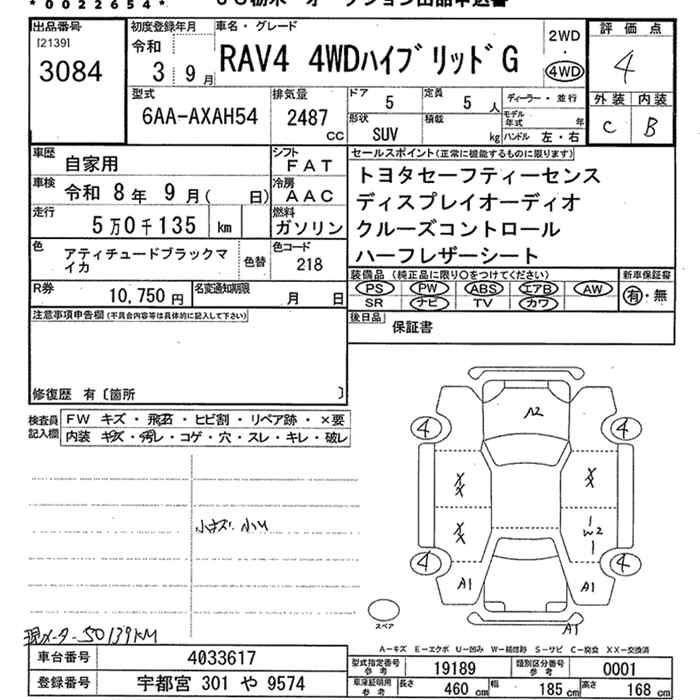 *0022654*
出品番号
[2139]
3084
初度登録年月
令和
3年9月
車名・グレード
RAV4 4WDハイブリッドG
2WD
・
4WD
評価点
4
外装 内装
C B
型式
6AA-AXAH54
排気量
2487
CC
ドア
5
定員
5人
形状
SUV
積載
kg
ディーラー・並行
モデル年式
年
ハンドル 左・右
車歴
自家用
シフト
FAT
車検
令和8年9月(日)
冷房
AAC
走行
5万0千135 km
燃料
ガソリン
色
アティチュードブラックマイカ
色替
色コード
218
R券
10,750円
名変通知期限
月 日
セールスポイント(正常に機能するものに限ります)
トヨタセーフティーセンス
ディスプレイオーディオ
クルーズコントロール
ハーフレザーシート
装備品(純正品に限り○をつけてください)
PS PW ABS エアB AW
SR ナビ TV カワ
新車保証書
有・無
後日品
保証書
注意事項申告欄(不具合内容等は具体的に記入して下さい)
修復歴 有〔箇所 〕
検査員記入欄
FW キズ・飛石・ヒビ割・リペア跡・×要
内装 キズ・汚レ・コゲ・穴・スレ・キレ・破レ
小キズ 小ヘコ
現メーター 50139KM
A2
4 4
XX XX
XX W2
4 4
A1 A1
A1
スペア
A-キズ E-エクボ U-凹み W-補修跡 S-サビ C-腐食 XX-交換済
車台番号
4033617
登録番号
宇都宮 301 や 9574
型式指定番号
参考
19189
類別区分番号
参考
0001
車庫証明用
参考
長さ
460 cm
幅
185 cm
高さ
168 cm